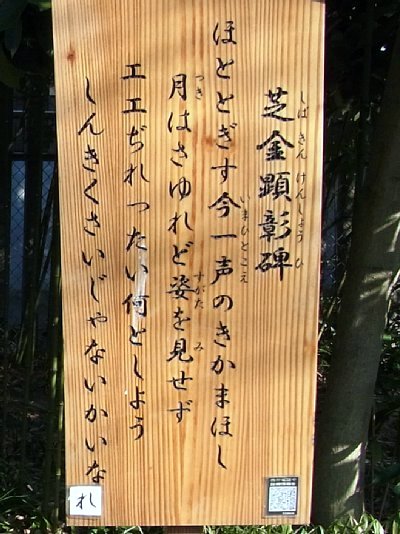 芝金顕彰碑
しばきんけんしょうひ
ほととぎす今一声のきかまほし
いまひとこえ
月はさゆれど姿を見せず
つき
すがた
み
エエぢれったい何としよう
しんきくさいじゃないかいな
れ